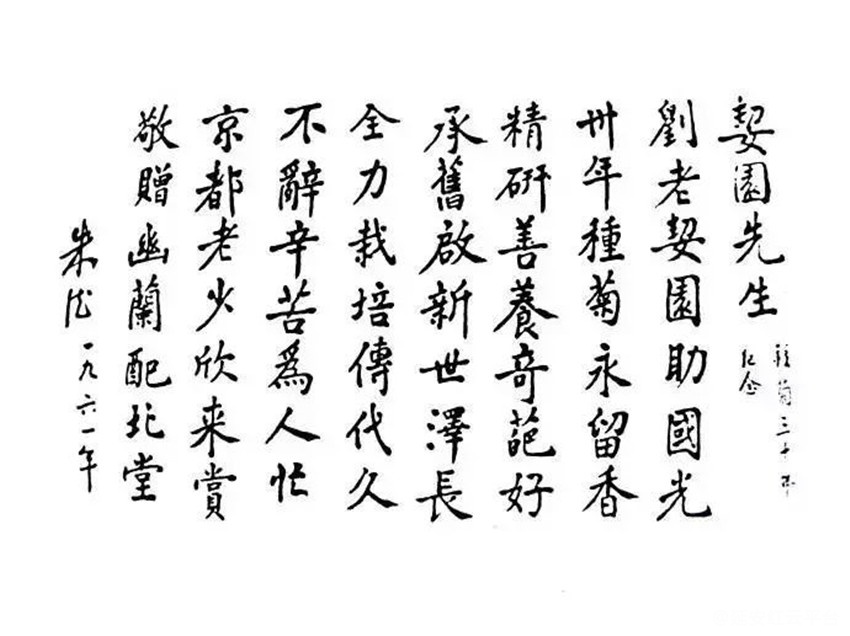 挈園先生
種菊三十年
紀念
劉老挈園助國光
卅年種菊永留香
精研善養奇葩好
承舊啟新世澤長
全力栽培傳代久
不辭辛苦為人忙
京都老少欣来賞
敬贈幽蘭配北堂
朱德
一九六一年